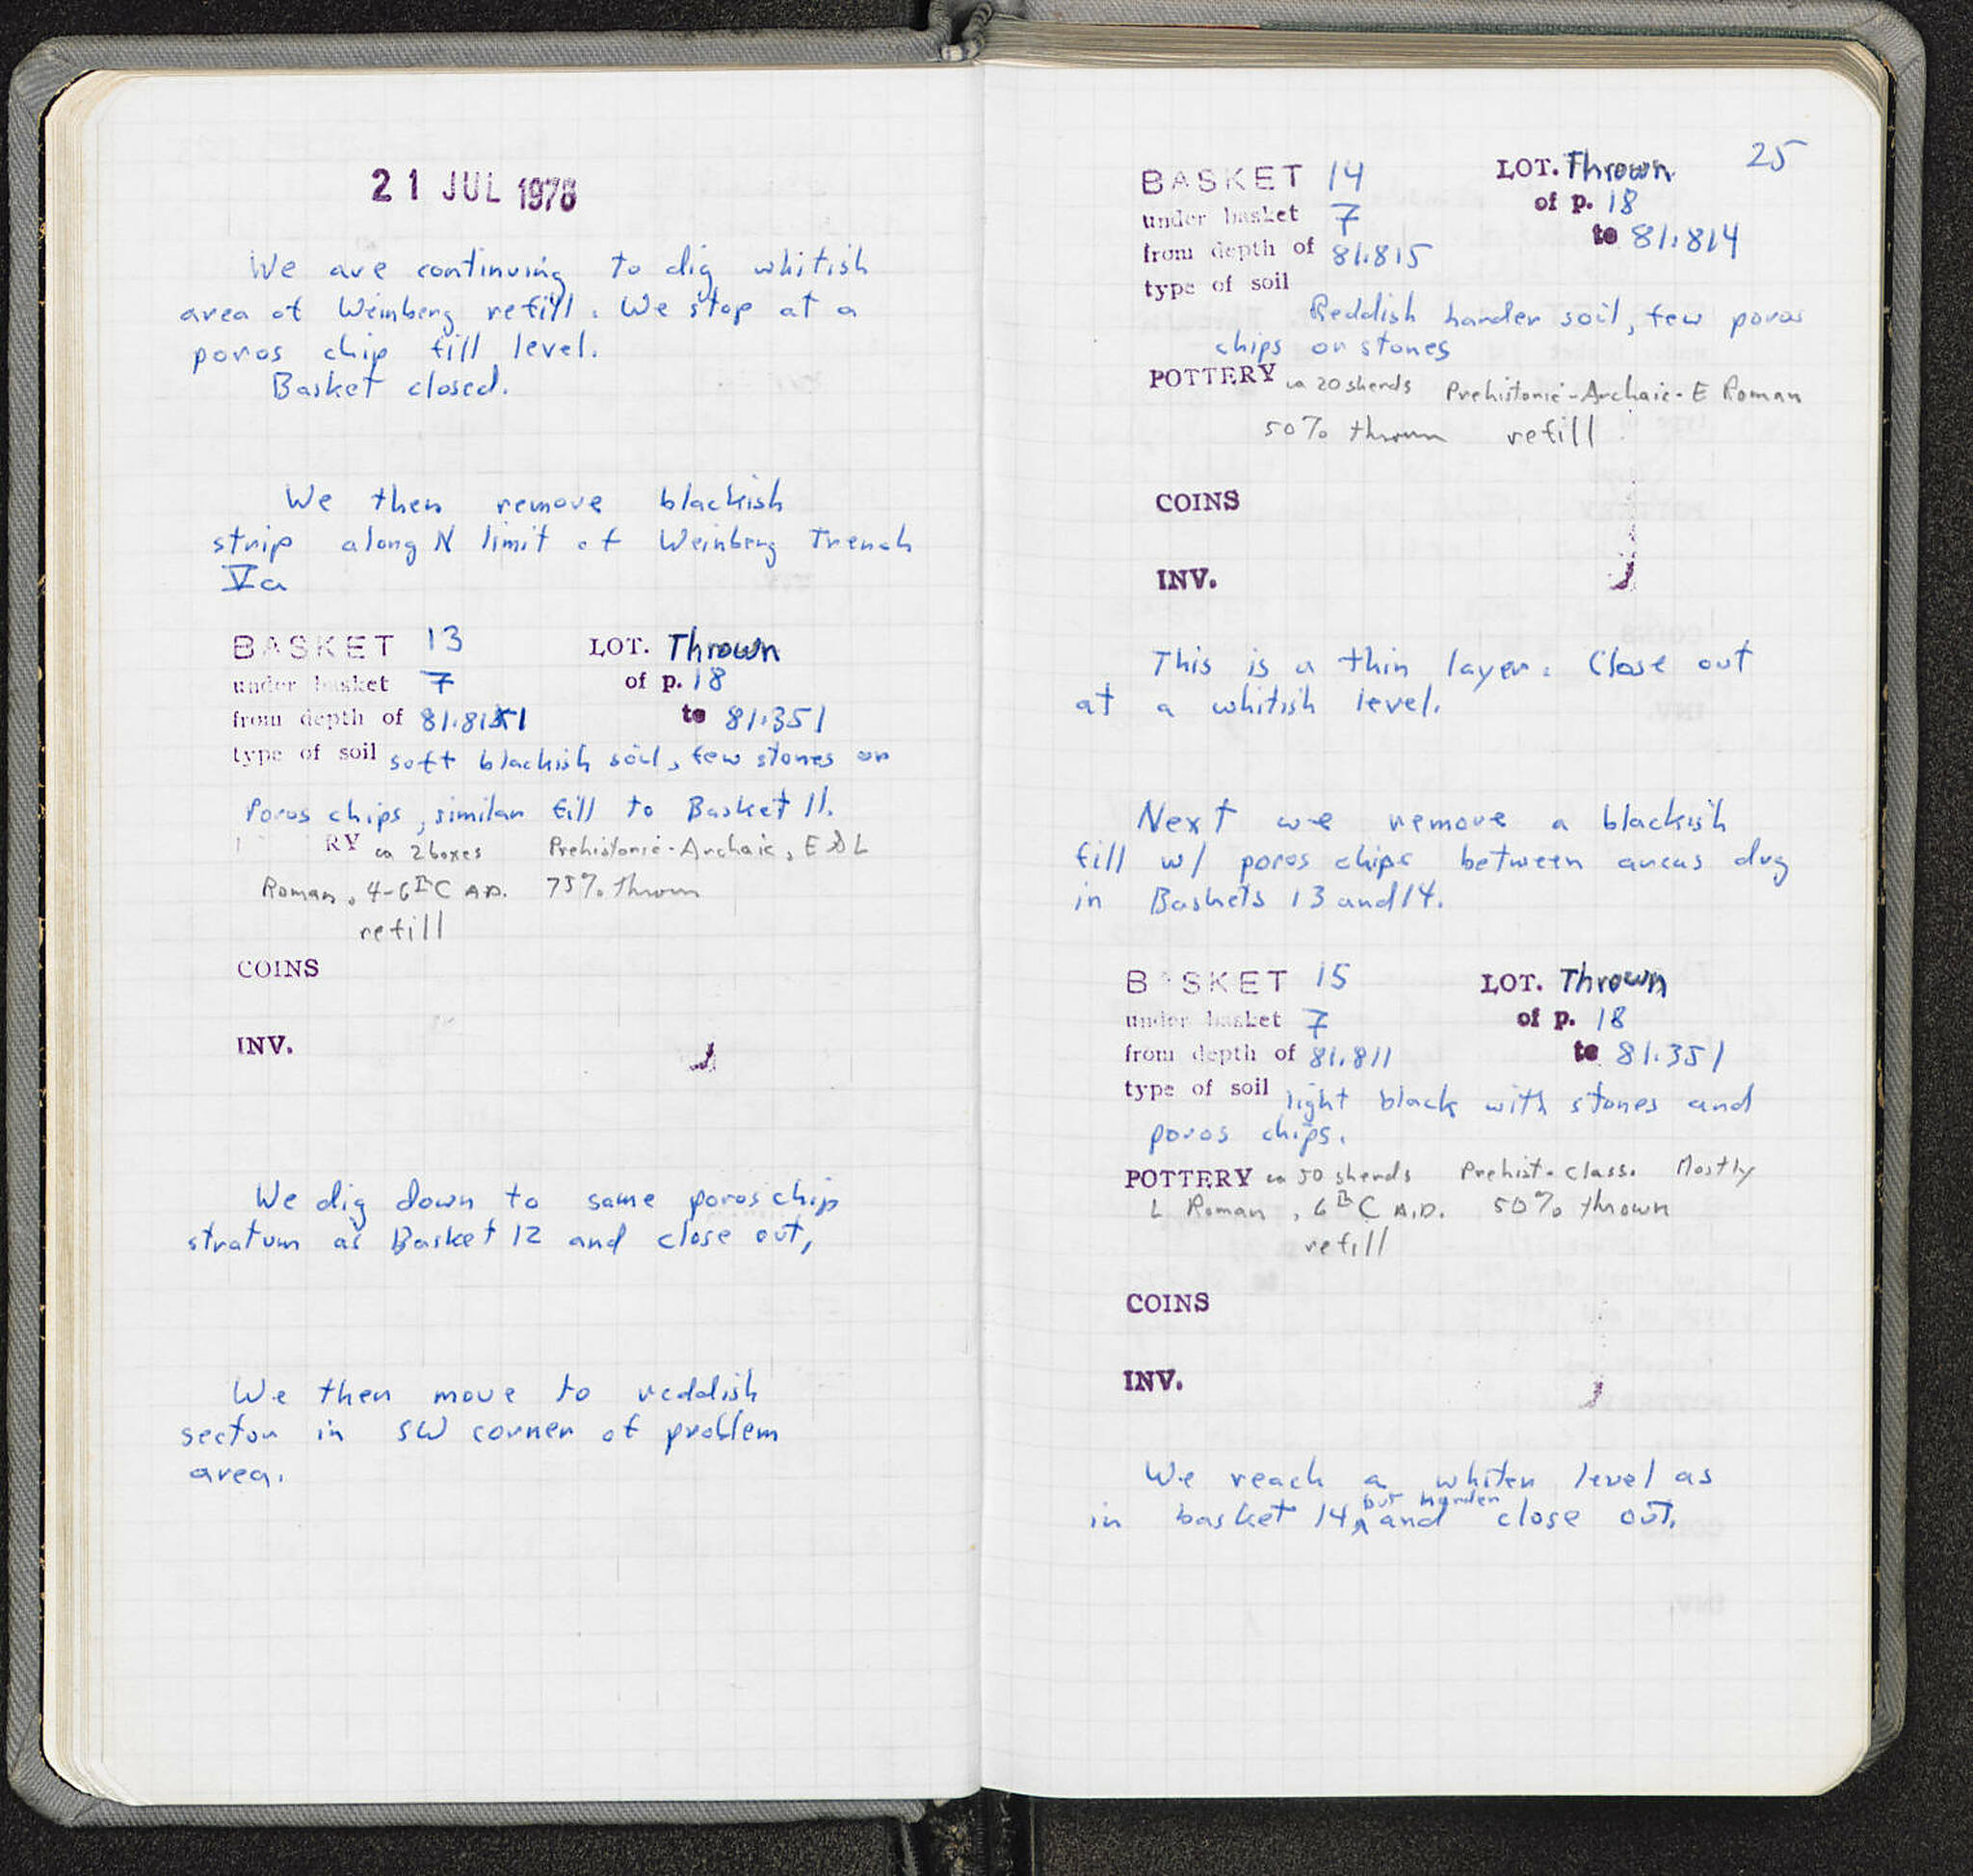 21 JUL 1978
We are continuing to dig whitish
area of Weinberg refill. We stop at a
poros chip fill level.
Basket closed.
We then remove blackish
strip along N limit of Weinberg Trench
Va
BASKET 13 LOT. Thrown
under basket 7 of p. 18
from depth of to 81.351
type of soil soft blackish soil, few stones or
poros chips, similar fill to Basket 11.
RY ca 2 boxes Prehistoric-Archaic, E & L
Roman, 4-6th C A.D. 75% thrown
refill
COINS
INV.
We dig down to same poros chip
stratum as Basket 12 and close out.
We then move to reddish
sector in SW corner of problem
area.
25
BASKET 14 LOT. Thrown
under basket 7 of p. 18
from depth of 81.815 to 81.814
type of soil
Reddish harder soil, few poros
chips or stones
POTTERY ca 20 sherds Prehistoric-Archaic-E Roman
50% thrown refill
COINS
INV.
This is a thin layer. Close out
at a whitish level.
Next we remove a blackish
fill w/ poros chips between areas dug
in Baskets 13 and 14.
BASKET 15 LOT. Thrown
under basket 7 of p. 18
from depth of 81.811 to 81.351
type of soil light black with stones and
poros chips.
POTTERY ca 50 sherds Prehist-class. Mostly
L Roman, 6th C A.D. 50% thrown
refill
COINS
INV.
We reach a whiter level as
in basket 14 but harder and close out.